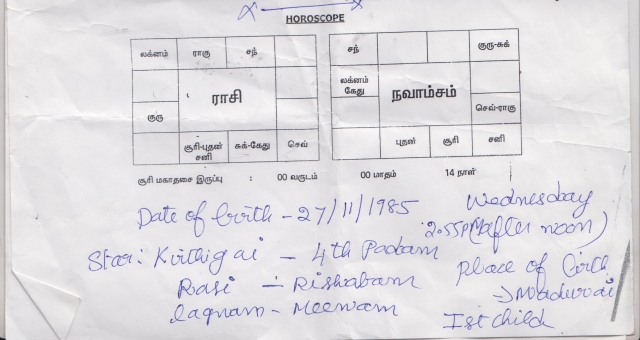 HOROSCOPE
லக்னம் ராகு சந்
ராசி
குரு
சூரி-புதன் சனி சுக்-கேது செவ்
சந் குரு-சுக்
லக்னம் கேது
நவாம்சம்
செவ்-ராகு
புதன் சூரி சனி
சூரி மகாதசை இருப்பு : 00 வருடம் 00 மாதம் 14 நாள்
Date of birth - 27/11/1985 Wednesday
2.55PM (after noon)
Star: Kirthigai - 4th Padam
Place of birth
Rasi - Rishabam
→ Madurai
Lagnam - Meenam
Ist child